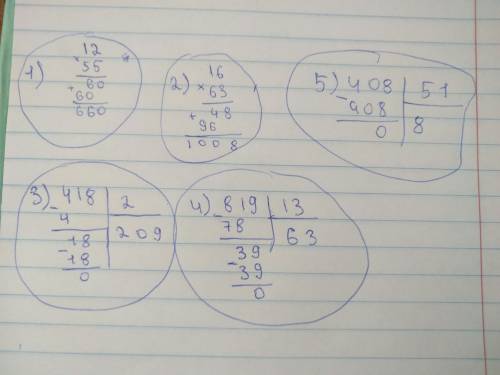 1)
12
× 55
60
+ 60
660
2)
16
× 63
+ 48
96
1008
5) 408 | 51
- 408 | 8
0
3) - 418 | 2
4 | 209
- 18
18
0
4) - 819 | 13
78 | 63
- 39
39
0